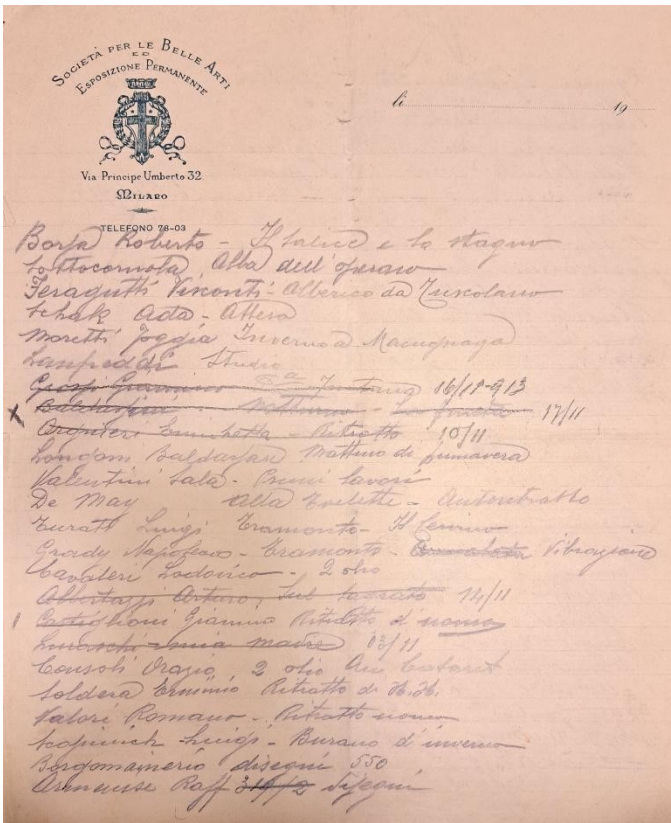 SOCIETÀ PER LE BELLE ARTI
ED
ESPOSIZIONE PERMANENTE
Via Principe Umberto 32
MILANO
TELEFONO 78-03
li 19
Borsa Roberto - Il salice e lo stagno
Sottocornola Alba dell'operaio
Feragutti Visconti - Alberico da Tuscolano
Schak Ada - Altera
Moretti Foggia Inverno a Macugnaga
Lanfreddi Studio
Grossi Giannino 16/11-913
Baldassini - Notturno - 17/11
Enrichetta - Ritratto 10/11
Longoni Baldassare Mattino di primavera
Valentini Sala - Primi lavori
De May Alla toilette - Autoritratto
Turati Luigi Tramonto - Il
Grady Napoleone - Tramonto - Vibrazione
Cavaleri Lodovico - 2 olio
Albertazzi Arturo, Sul 14/11
Castiglioni Giannino Ritratto d'uomo
Luraschi - mia madre 13/11
Consoli Orazio 2 olio Cabaret
Soldera Erminio Ritratto di
Valori Romano - Ritratto uomo
Scopinich Luigi - Burano d'inverno
Borgomainerio disegni 550
Armenise Raff disegni